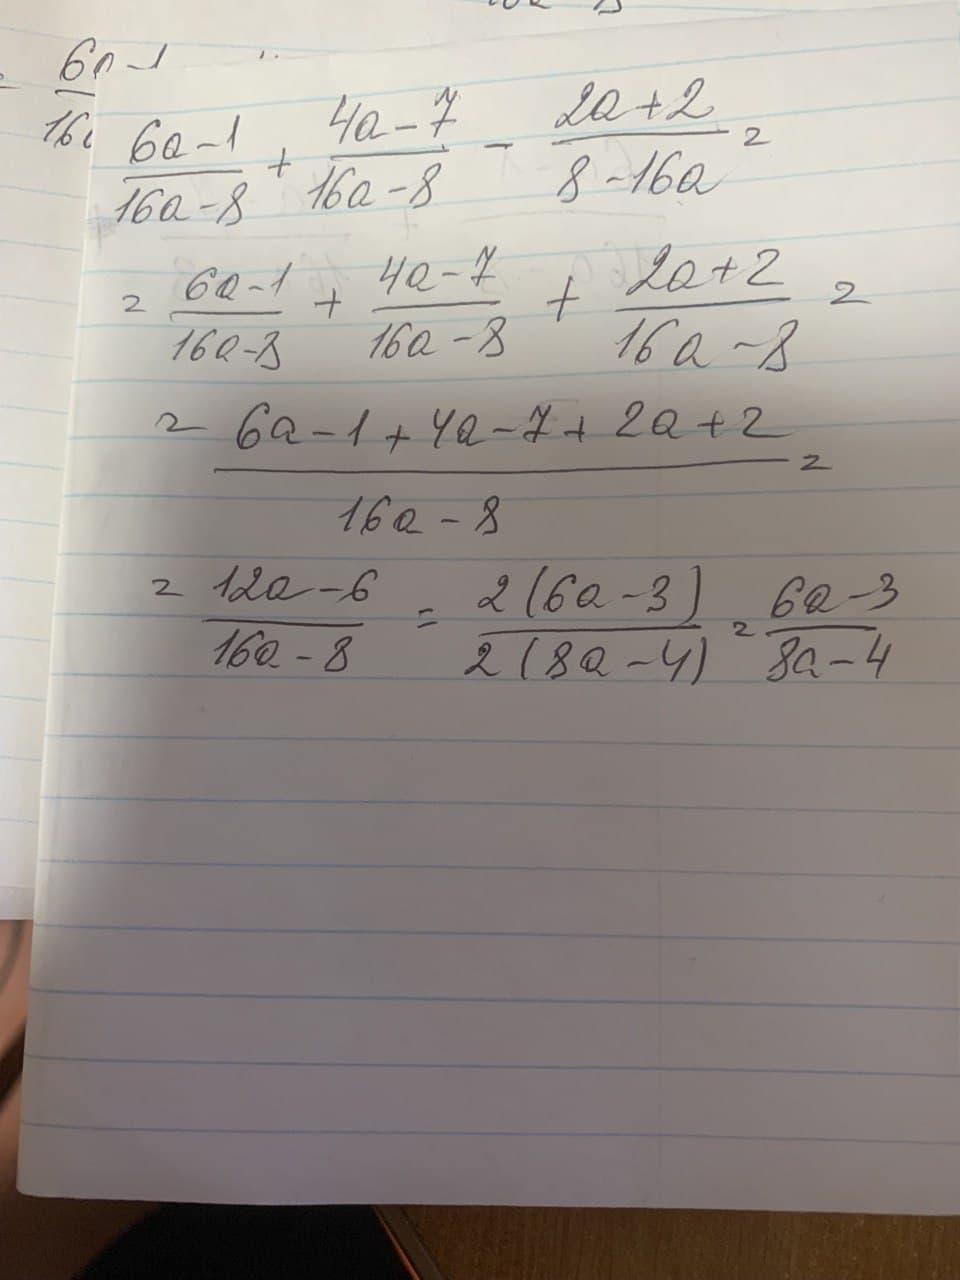 6a-1
16a
6a-1/16a-8 + 4a-7/16a-8 - 2a+2/8-16a =
= 6a-1/16a-8 + 4a-7/16a-8 + 2a+2/16a-8 =
= 6a-1+4a-7+2a+2/16a-8 =
= 12a-6/16a-8 = 2(6a-3)/2(8a-4) = 6a-3/8a-4